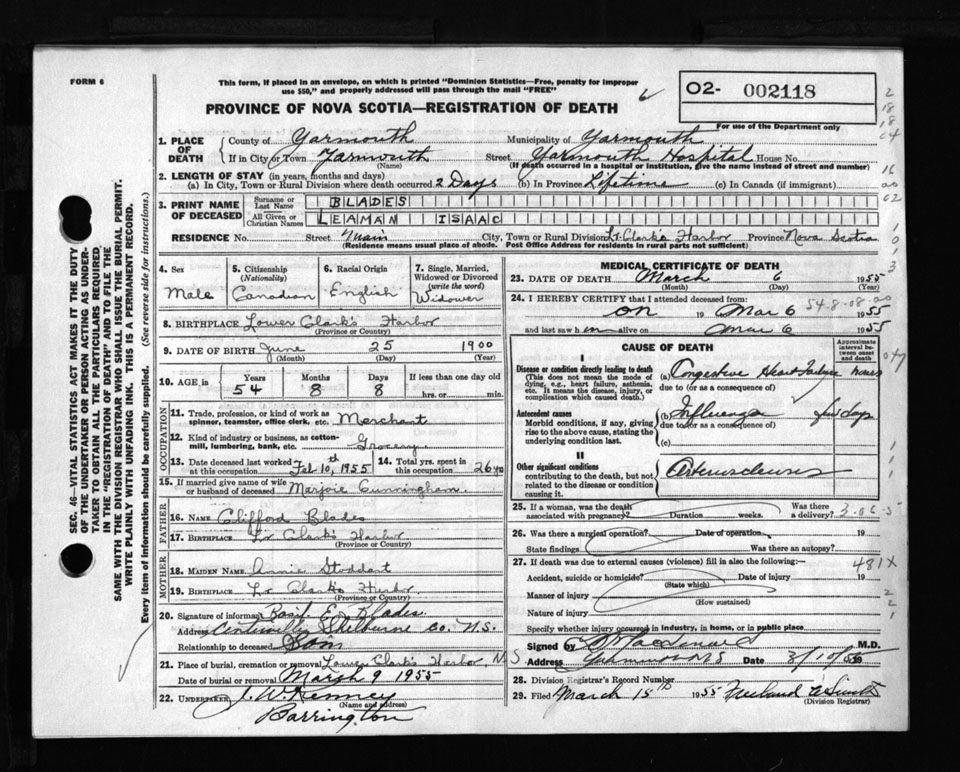 FORM 6
This form, if placed in an envelope, on which is printed "Dominion Statistics—Free, penalty for improper
use $50," and properly addressed will pass through the mail "FREE"
PROVINCE OF NOVA SCOTIA—REGISTRATION OF DEATH
O2- 002118
For use of the Department only
1. PLACE OF DEATH County of Yarmouth Municipality of Yarmouth
If in City or Town Yarmouth Street Yarmouth Hospital House No.
(Name) (If death occurred in a hospital or institution, give the name instead of street and number)
2. LENGTH OF STAY (in years, months and days)
(a) In City, Town or Rural Division where death occurred 2 Days (b) In Province Lifetime (c) In Canada (if immigrant)
3. PRINT NAME OF DECEASED Surname or Last Name BLADES
All Given or Christian Names LEAMAN ISAAC
RESIDENCE No. Street Main City, Town or Rural Division Lr. Clark's Harbor Province Nova Scotia
(Residence means usual place of abode. Post Office Address for residents in rural parts not sufficient)
SEC. 46—VITAL STATISTICS ACT MAKES IT THE DUTY
OF THE UNDERTAKER OR PERSON ACTING AS UNDER-
TAKER TO OBTAIN ALL THE PARTICULARS REQUIRED
IN THE "REGISTRATION OF DEATH" AND TO FILE THE
SAME WITH THE DIVISION REGISTRAR WHO SHALL ISSUE THE BURIAL PERMIT.
WRITE PLAINLY WITH UNFADING INK. THIS IS A PERMANENT RECORD.
Every item of information should be carefully supplied. (See reverse side for instructions.)
4. Sex Male
5. Citizenship (Nationality) Canadian
6. Racial Origin English
7. Single, Married, Widowed or Divorced (write the word) Widower
8. BIRTHPLACE Lower Clark's Harbor
(Province or Country)
9. DATE OF BIRTH June 25 1900
(Month) (Day) (Year)
10. AGE in Years 54 Months 8 Days 8 If less than one day old
hrs. or min.
OCCUPATION
11. Trade, profession, or kind of work as
spinner, teamster, office clerk, etc. Merchant
12. Kind of industry or business, as cotton-
mill, lumbering, bank, etc. Grocery
13. Date deceased last worked at this occupation Feb 10th, 1955
14. Total yrs. spent in this occupation 26 yrs
15. If married give name of wife
or husband of deceased Marjoie Cunningham.
FATHER
16. NAME Clifford Blades
17. BIRTHPLACE Lr Clark's Harbor
(Province or Country)
MOTHER
18. MAIDEN NAME Annie Stoddart
19. BIRTHPLACE Lr Clark's Harbor
(Province or Country)
20. Signature of informant Basil E. Blades.
Address Centreville Shelburne Co. N.S.
Relationship to deceased Son
21. Place of burial, cremation or removal Lower Clark's Harbor N.S
Date of burial or removal March 9 1955
22. UNDERTAKER J. W. Kenney
(Name and address)
Barrington
MEDICAL CERTIFICATE OF DEATH
23. DATE OF DEATH March 6 1955
(Month) (Day)
24. I HEREBY CERTIFY that I attended deceased from:
54-8-08-00
on 19 Mar 6 1955
and last saw h im alive on Mar 6 1955
CAUSE OF DEATH
Approximate interval between onset and death
I
Disease or condition directly leading to death
(This does not mean the mode of
dying, e.g., heart failure, asthenia,
etc. It means the disease, injury, or
complication which caused death.)
(a) Congestive Heart Failure hours
due to (or as a consequence of)
Antecedent causes
Morbid conditions, if any, giving
rise to the above cause, stating the
underlying condition last.
(b) Influenza few days
due to (or as a consequence of)
(c)
II
Other significant conditions
contributing to the death, but not
related to the disease or condition
causing it.
25. If a woman, was the death Was there
associated with pregnancy? Duration weeks. a delivery?
26. Was there a surgical operation? Date of operation 19
State findings Was there an autopsy?
27. If death was due to external causes (violence) fill in also the following:— 481X
Accident, suicide or homicide? Date of injury 19
(State which)
Manner of injury
(How sustained)
Nature of injury
Specify whether injury occurred in industry, in home, or in public place
Signed by M.D.
Address Yarmouth NS Date
28. Division Registrar's Record Number
29. Filed March 15th 1955
(Division Registrar)